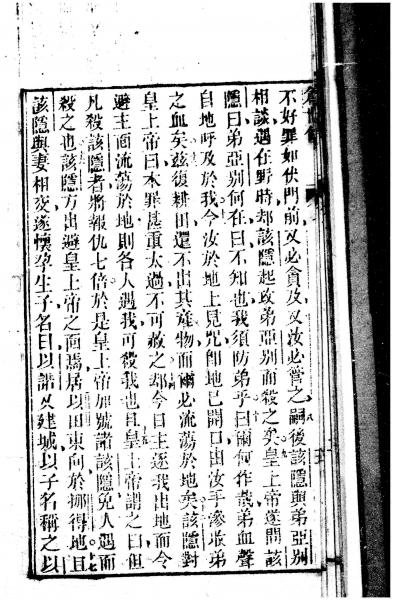 不好罪如伏門前又必貪及又汝必管之嗣後該隱與弟亞別
相談遇在野時却該隱起攻弟亞別而殺之矣皇上帝遂問該
隱曰弟亞別何在曰不知也我須防弟乎曰爾何作哉弟血聲
自地呼及於我今汝於地上見咒卽地已開口由汝手滲收弟
之血矣茲復耕田還不出其產物而爾必流蕩於地矣該隱對
皇上帝曰本罪甚重太過不可赦之却今日主逐我出地而令
避主面流蕩於地則各人遇我可殺我也且皇上帝謂之曰但
凡殺該隱者將報仇七倍於是皇上帝加號諸該隱免人遇而
殺之也該隱方出避皇上帝之面焉居以田東向於挪得地且
該隱與妻相交遂懷孕生子名曰以諾又建城以子名稱之以